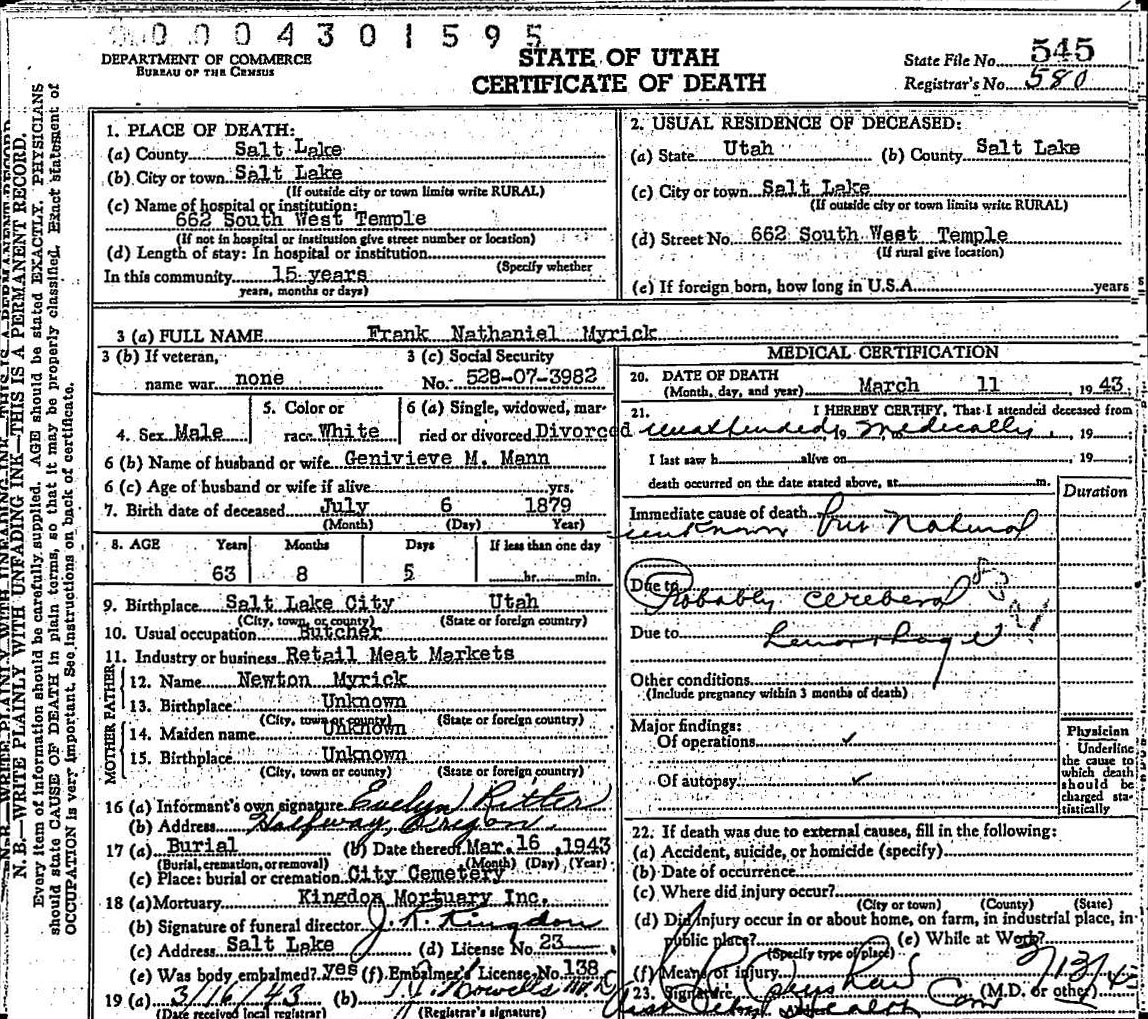 0004301595
DEPARTMENT OF COMMERCE
BUREAU OF THE CENSUS
STATE OF UTAH
CERTIFICATE OF DEATH
State File No. 545
Registrar's No. 580
N. B.—WRITE PLAINLY WITH UNFADING INK—THIS IS A PERMANENT RECORD.
Every item of information should be carefully supplied. AGE should be stated EXACTLY. PHYSICIANS
should state CAUSE OF DEATH in plain terms, so that it may be properly classified. Exact statement of
OCCUPATION is very important. See instructions on back of certificate.
1. PLACE OF DEATH:
(a) County Salt Lake
(b) City or town Salt Lake
(If outside city or town limits write RURAL)
(c) Name of hospital or institution:
662 South West Temple
(If not in hospital or institution give street number or location)
(d) Length of stay: In hospital or institution
(Specify whether
In this community 15 years
years, months or days)
2. USUAL RESIDENCE OF DECEASED:
(a) State Utah (b) County Salt Lake
(c) City or town Salt Lake
(If outside city or town limits write RURAL)
(d) Street No. 662 South West Temple
(If rural give location)
(e) If foreign born, how long in U.S.A. years
3 (a) FULL NAME Frank Nathaniel Myrick
3 (b) If veteran,
name war none
3 (c) Social Security
No. 528-07-3982
4. Sex Male
5. Color or
race White
6 (a) Single, widowed, mar-
ried or divorced Divorced
6 (b) Name of husband or wife Genivieve M. Mann
6 (c) Age of husband or wife if alive yrs.
7. Birth date of deceased July 6 1879
(Month) (Day) Year)
8. AGE Years Months Days If less than one day
63 8 5 hr. min.
9. Birthplace Salt Lake City Utah
(City, town, or county) (State or foreign country)
10. Usual occupation Butcher
11. Industry or business Retail Meat Markets
FATHER
12. Name Newton Myrick
13. Birthplace Unknown
(City, town or county) (State or foreign country)
MOTHER
14. Maiden name Unknown
15. Birthplace Unknown
(City, town or county) (State or foreign country)
16 (a) Informant's own signature Evelyn Ritter
(b) Address Halfway, Oregon.
17 (a) Burial (b) Date thereof Mar. 16, 1943
(Burial, cremation, or removal) (Month) (Day) (Year)
(c) Place: burial or cremation City Cemetery
18 (a) Mortuary Kingdon Mortuary Inc.
(b) Signature of funeral director J. R. Kingdon
(c) Address Salt Lake (d) License No. 23
(e) Was body embalmed? yes (f) Embalmer's License No. 138
19 (a) 3/16/43 (b)
(Date received local registrar) (Registrar's signature)
MEDICAL CERTIFICATION
20. DATE OF DEATH
(Month, day, and year) March 11 1943
21. I HEREBY CERTIFY, That I attended deceased from
unattended, 19 medically, 19 ;
I last saw h alive on , 19 ;
death occurred on the date stated above, at m.
Duration
Immediate cause of death
unknown but Natural
Due to
Probably cerebral
Due to hemorrhage
Other conditions
(Include pregnancy within 3 months of death)
Major findings:
Of operations ✓
Of autopsy ✓
Physician
Underline
the cause to
which death
should be
charged sta-
tistically
22. If death was due to external causes, fill in the following:
(a) Accident, suicide, or homicide (specify)
(b) Date of occurrence
(c) Where did injury occur?
(City or town) (County) (State)
(d) Did injury occur in or about home, on farm, in industrial place, in
public place? (e) While at Work?
(Specify type of place)
(f) Means of injury
23. Signature (M.D. or other)